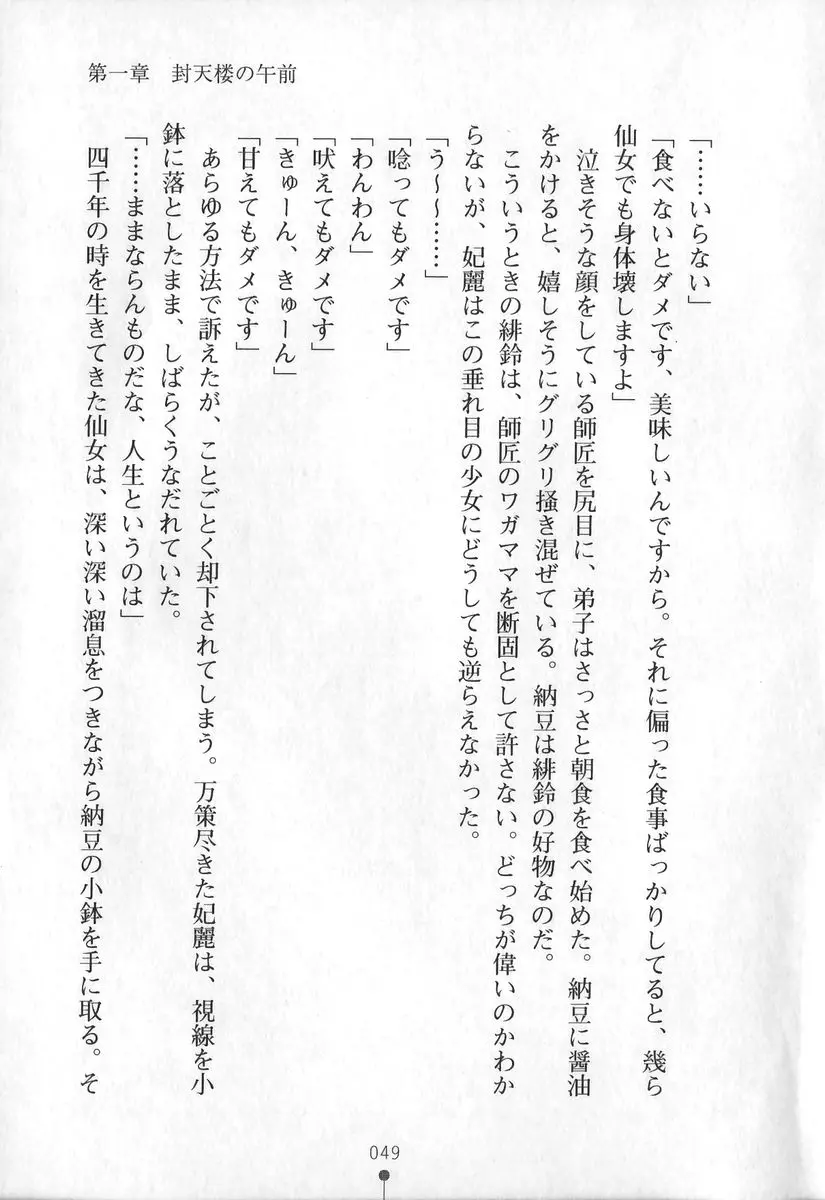 第一章　封天楼の午前
「……いらない」
「食べないとダメです、美味しいんですから。それに偏った食事ばっかりしてると、幾ら
仙女でも身体壊しますよ」
　泣きそうな顔をしている師匠を尻目に、弟子はさっさと朝食を食べ始めた。納豆に醤油
をかけると、嬉しそうにグリグリ掻き混ぜている。納豆は緋鈴の好物なのだ。
　こういうときの緋鈴は、師匠のワガママを断固として許さない。どっちが偉いのかわか
らないが、妃麗はこの垂れ目の少女にどうしても逆らえなかった。
「う～～……」
「唸ってもダメです」
「わんわん」
「吠えてもダメです」
「きゅーん、きゅーん」
「甘えてもダメです」
　あらゆる方法で訴えたが、ことごとく却下されてしまう。万策尽きた妃麗は、視線を小
鉢に落としたまま、しばらくうなだれていた。
「……ままならんものだな、人生というのは」
　四千年の時を生きてきた仙女は、深い深い溜息をつきながら納豆の小鉢を手に取る。そ
049